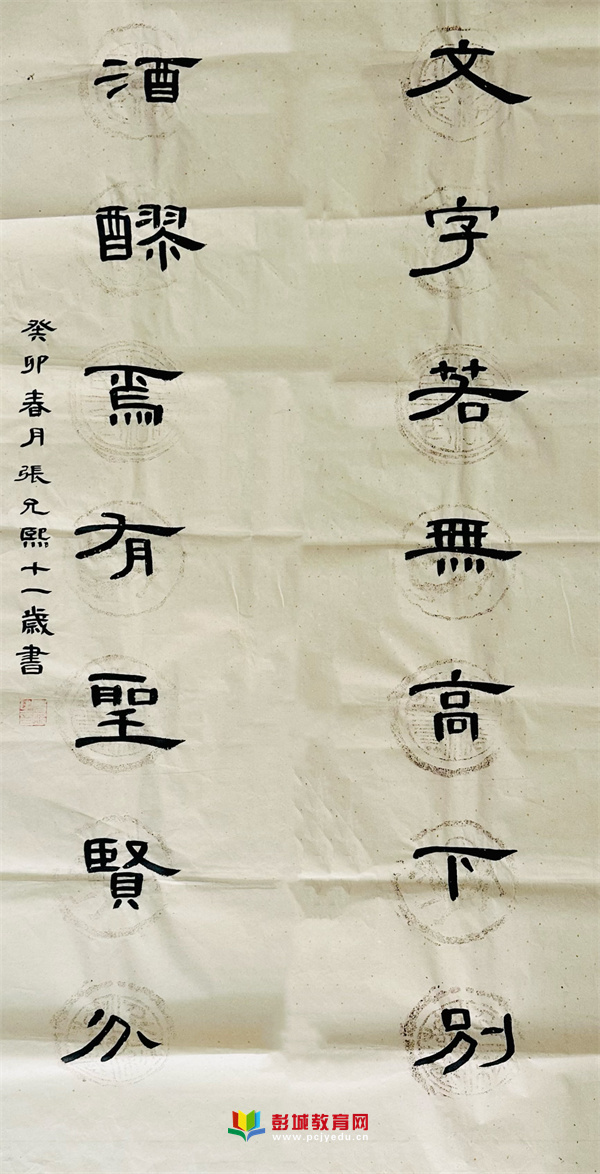 文字若無高下别
酒醪焉有聖賢分
癸卯春月張允熙十一歲書
彭城教育网
www.pcjyedu.cn